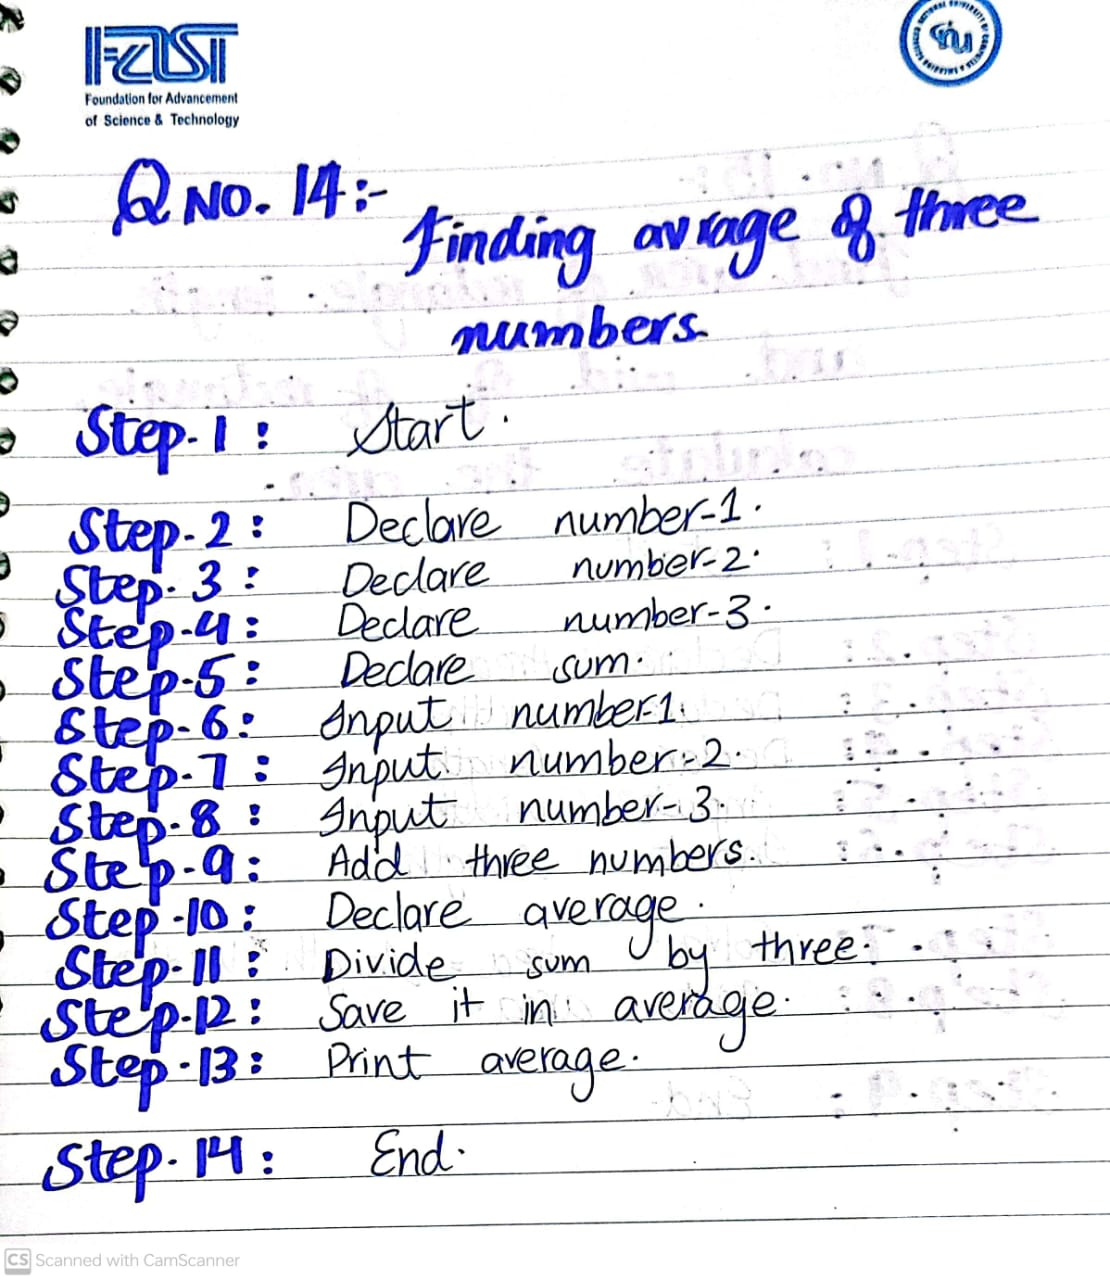 FAST
Foundation for Advancement
of Science & Technology
Q No. 14:-
Finding avrage of three
numbers.
Step-1: Start.
Step-2: Declare number-1.
Step-3: Declare number-2.
Step-4: Declare number-3.
Step-5: Declare sum.
Step-6: Input number-1.
Step-7: Input number-2.
Step-8: Input number-3.
Step-9: Add three numbers.
Step-10: Declare average.
Step-11: Divide sum by three.
Step-12: Save it in average.
Step-13: Print average.
Step-14: End.
CS Scanned with CamScanner